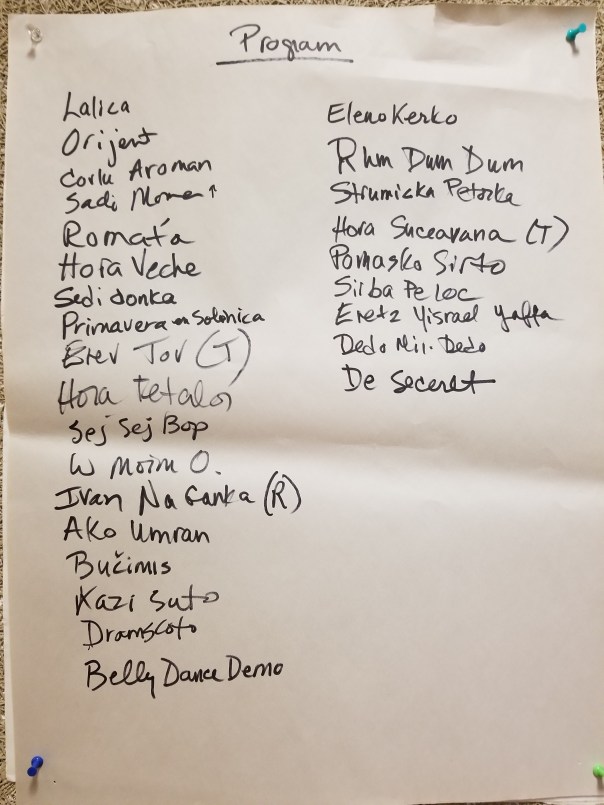 Program
Lalica
Orijent
Corlu Aroman
Sadi Mome ↑
Romaťa
Hora Veche
Sedi donka
Primavera en Solonica
Erev Tov (T)
Hora Fetalor
Sej Sej Bop
W Moim O.
Ivan Na Canka (R)
AKo Umran
Bučimis
Kazi Suto
Dramscoto
Belly Dance Demo
Eleno Kerko
Rum Dum Dum
Strumicka Petorka
Hora Suceavana (T)
Pomasko Sirto
Sirba Pe loc
Eretz Yisrael Yaffa
Dedo Mil. Dedo
De Seceret